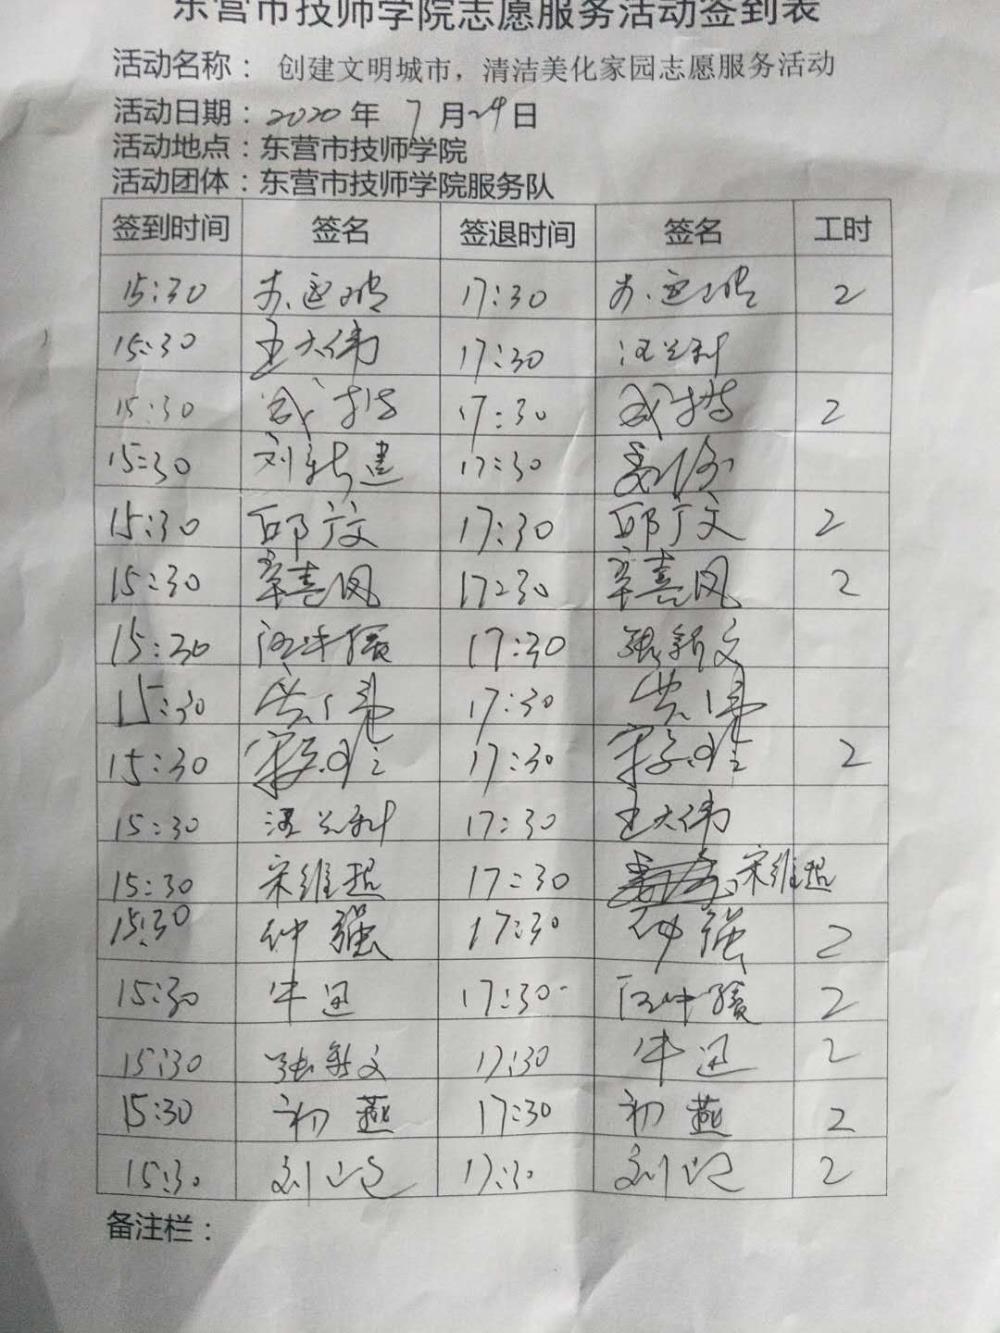 东营市技师学院志愿服务活动签到表
活动名称：创建文明城市，清洁美化家园志愿服务活动
活动日期：2020年7月29日
活动地点：东营市技师学院
活动团体：东营市技师学院服务队
签到时间 签名 签退时间 签名 工时
15:30 17:30 2
15:30 王大伟 17:30 汪兰利
15:30 武 17:30 武 2
15:30 刘新建 17:30
15:30 邱广文 17:30 邱广文 2
15:30 辛喜凤 17:30 辛喜凤 2
15:30 17:30 张新文
15:30 17:30
15:30 17:30 2
15:30 汪兰利 17:30 王大伟
15:30 宋维超 17:30 宋维超
15:30 钟强 17:30 钟强 2
15:30 牛迅 17:30 2
15:30 张新文 17:30 牛迅 2
15:30 初燕 17:30 初燕 2
15:30 刘 17:30 刘 2
备注栏：